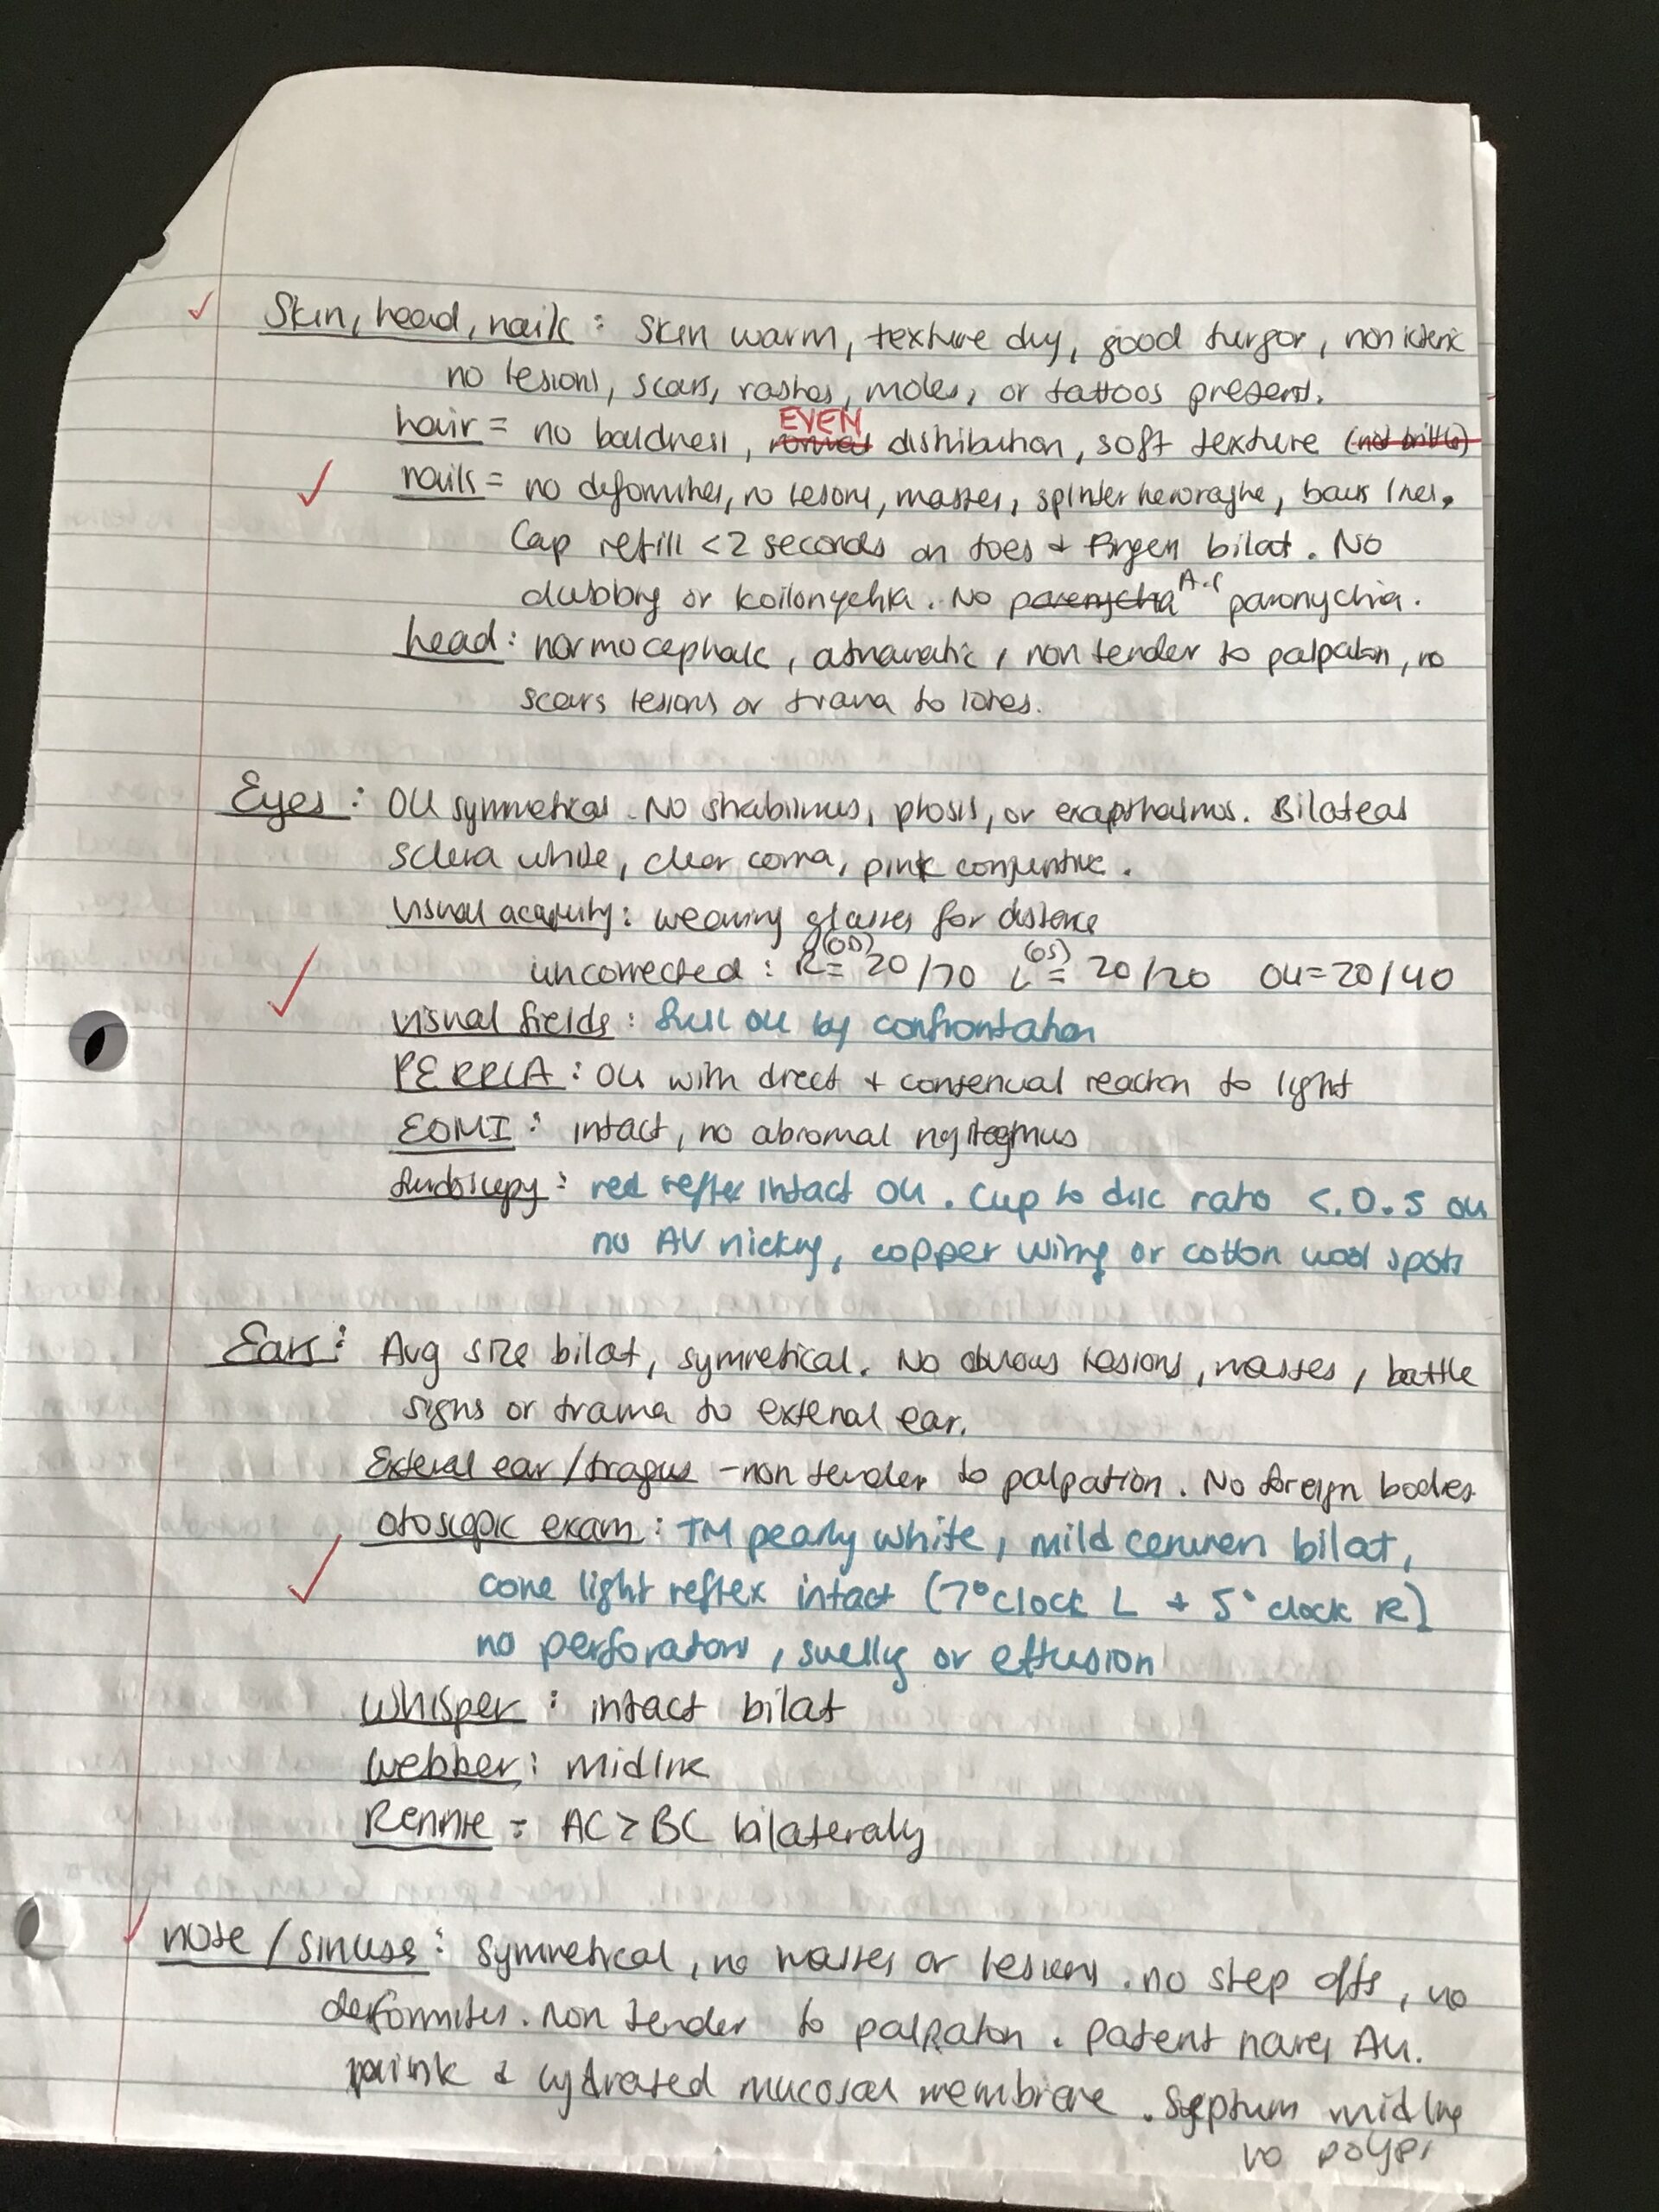 Skin, head, nails: Skin warm, texture dry, good turgor, non icteric
no lesions, scars, rashes, moles, or tattoos present.
EVEN
hair = no baldness, normal distribution, soft texture (not brittle)
nails = no deformities, no lesions, masses, splinter hemoraghe, baus lines.
Cap refill <2 seconds on toes + fingers bilat. No
clubbing or koilonychia. No parenycha A.C paronychia.
head: normocephalic, atraumatic, non tender to palpation, no
scars lesions or trama to lobes.
Eyes: OU symmetrical. No strabismus, ptosis, or exapthalmos. Bilateral
sclera white, clear corna, pink conjuntive.
Visual acquity: wearing glasses for distance
uncorrected: R(OD)= 20/70 L(OS)= 20/20 OU=20/40
Visual fields: full OU by confrontation
PERRLA: OU with direct + consensual reaction to light
EOMI: intact, no abromal nystagmus
fundoscopy: red reflex intact OU. Cup to disc ratio <.0.5 OU
no AV nicking, copper wiring or cotton wool spots
Ears: Avg size bilat, symmetrical. No obvious lesions, masses, battle
signs or trama to external ear.
External ear/tragus - non tender to palpation. No foreign bodies
otoscopic exam: TM pearly white, mild cerumen bilat,
cone light reflex intact (7° clock L + 5° clock R)
no perforations, swelling or effusion
Whisper: intact bilat
Webber: midline
Rennie = AC > BC bilateraly
nose/sinuses: Symmetrical, no masses or lesions. no step offs, no
deformites. Non tender to palpaton. Patent nares AU.
pink & hydrated mucosal membrane. Septum midline
no polyps